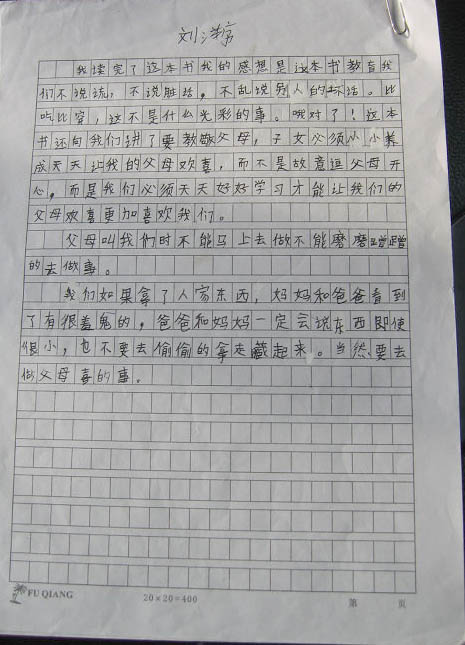 刘洋
我读完了这本书我的感想是这本书教育我
们不说谎,不说脏话,不乱说别人的坏话。比
吃比穿,这不是什么光彩的事。哦对了!这本
书还向我们讲了要教敬父母,子女必须从小养
成天天让我的父母欢喜,而不是故意逗父母开
心,而是我们必须天天好好学习才能让我们的
父母欢喜更加喜欢我们。
父母叫我们时不能马上去做不能磨磨蹭蹭
的去做事。
我们如果拿了人家东西,妈妈和爸爸看到
了有很羞鬼的,爸爸和妈妈一定会说东西即使
很小,也不要去偷偷的拿走藏起来。当然要去
做父母喜的事。
FU QIANG
20×20=400
第 页